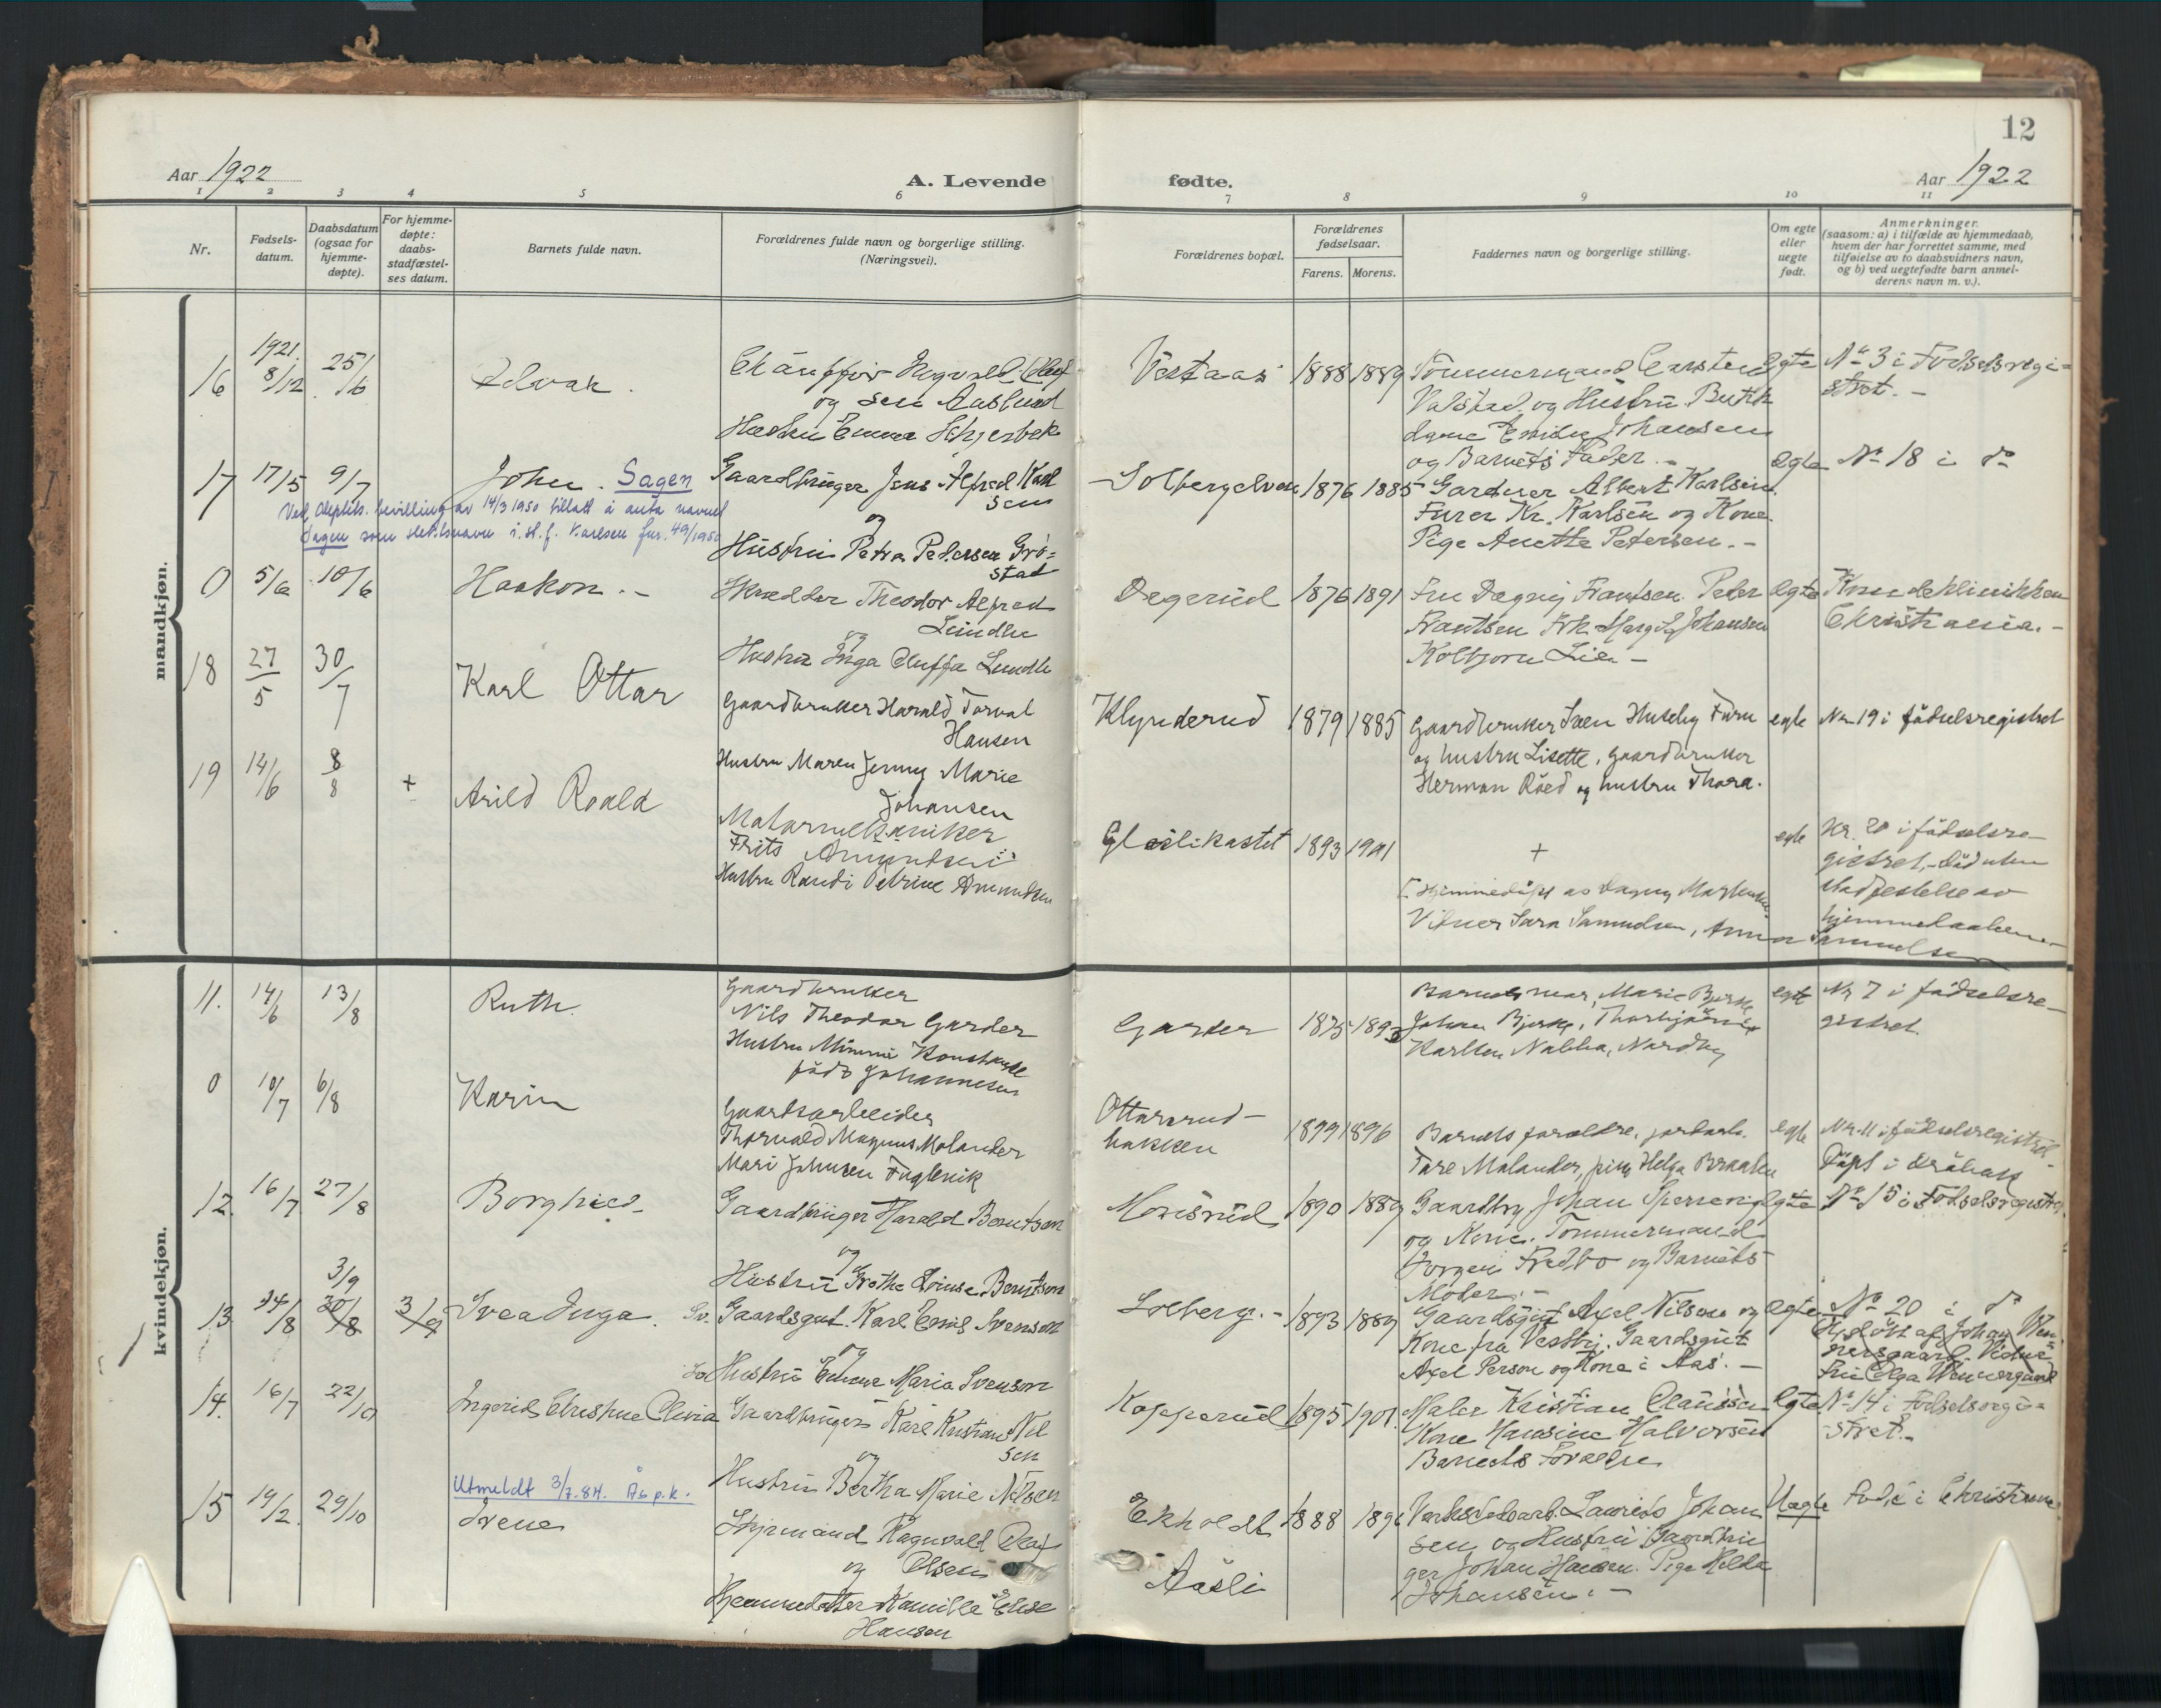 12
Aar 1922
A. Levende
fødte.
Aar 1922
1 2 3 4 5 6 7 8 9 10 11
Nr.
Fødsels-
datum.
Daabsdatum
(ogsaa for
hjemme-
døpte).
For hjemme-
døpte:
daabs-
stadfæstel-
ses datum.
Barnets fulde navn.
Forældrenes fulde navn og borgerlige stilling.
(Næringsvei).
Forældrenes bopæl.
Forældrenes
fødselsaar.
Farens. Morens.
Faddernes navn og borgerlige stilling.
Om egte
eller
uegte
født.
Anmerkninger.
(saasom: a) i tilfælde av hjemmedaab,
hvem der har forrettet samme, med
tilføielse av to daabsvidners navn,
og b) ved uegtefødte barn anmel-
derens navn m. v.).
mandkjøn.
16
1921.
8/12
25/6
Edvak.
og
Hustru Emma
Vestaas
1888 1889
Carsten
Valstad og Hustru
Johansen
og Barnets Fader.
Egte
No 3 i Fødselsregi=
stret. -
17
17/5
9/7
John. Sagen
Ved deplts. bevilling av 14/3 1950 tillatt å anta navnet
Sagen som slektsnavn i st. f. Karlsen jnr. 49/1950
Gaardbruger Jens Alfred Karl
sen
og
Hustru Petra Pedersen Grø=
stad
Solbergelven
1876 1885
Gardner Albert Karlsen
Furer Kr. Karlsen og Kone.
Pige Anette Petersen. -
Egte
No 18 i do
0
5/6
10/6
Haakon. -
Skrædder Theodor Alfred
Lundh
og
Hustru Inga Lundh
Degerud
1876 1891
Fru Dagny Frantsen Peder
Frantsen Frk. Johansen
Kolbjørn Lie -
Egte
Kvindeklinikken
Christiania. -
18
27/5
30/7
Karl Ottar
Gaardbruker Harald Torval
Hansen
Hustru Maren Jenny Marie
Johansen
Klynderud
1879 1885
Gaardbruker Sven Huseby Furu
og hustru Lisette, gaardbruker
Herman Röed og hustru Thora.
egte
Nr 19 i fødselsregistret
19
14/6
8/8
+
Arild Roald
Motormekaniker
Frits Amundsen
Hustru Randi Petrine Amundsen
1893 1901
+
Hjemmedøpt av Dagny
Vitner Sara Samuelsen, Anna Samuelsen
egte
Nr. 20 i fødselsre-
gistret, - Död uten
stadfestelse av
hjemmedaaben -
kvindekjøn.
11.
14/6
13/8
Ruth.
Gaardbruker
Nils Theodor Garder
Hustru Minnie Konstanse
född Johannesen
Garder
1875 1893
Barnets mor, Marie Bjerke
Johan Bjerke,
Karlsen Nabba, Nordby
egte
Nr 7 i fødselsre-
gistret
0
10/7
6/8
Karin
Gaardsarbeider
Thorvald Magnus Molander
Mari Johnsen Fuglevik
Ottersrud-
bakken
1899 1896
Barnets foreldre,
Tore Molander, pike Helga Braaten
egte
Nr. 11 i fødselsregistret.
Döpt i Dröbak
12.
16/7
27/8
Borghild
Gaardbruger Harald Berntsen
og
Hustru Grethe Lovise Berntsen
1890 1889
Gaardbr. Johan
og Kone. Tømmermand
Jørgen Fredbo og Barnets
Moder. -
Egte
No 15 i Fødselsregistret.
13
24/8
3/9
30/8
3/9
Svea Inga.
Sv. Gaardsgut. Karl Emil Svenson
og
Hustru Maria Svenson
Solberg. -
1893 1889
Gaardsgut Axel Nilsen og
Kone fra Vestby. Gaardsgut
Axel Person og Kone i Aas. -
Egte
No 20 i do
Hj. døbt af Johan Wen
nersgaard. Vidne
Fru Olga Wennergaard
14.
16/7
22/10
Ingerid Christine Olivia
Gaardbruger Karl Kristian Nil
sen
og
Hustru Bertha Marie Nilsen
Kopperud
1895 1901.
Maler Kristian
Kone Hansine Halvorsen
Barnets Forældre
Egte.
No 14 i Fødselsregi=
stret. -
Utmeldt 3/7.84. Ås p.k.
15
19/2
29/10
Irene
Styrmand Ragnvald Olaf
og Olsen
Hjemmedatter Kamilla Elise
Hansen
Ekholdt
Aasli
1888
Laurits Johan
sen og Hustru Gaardbru
ger Johan Hansen. Pige Hilda
Johansen. -
Uegte
Født i Christiania